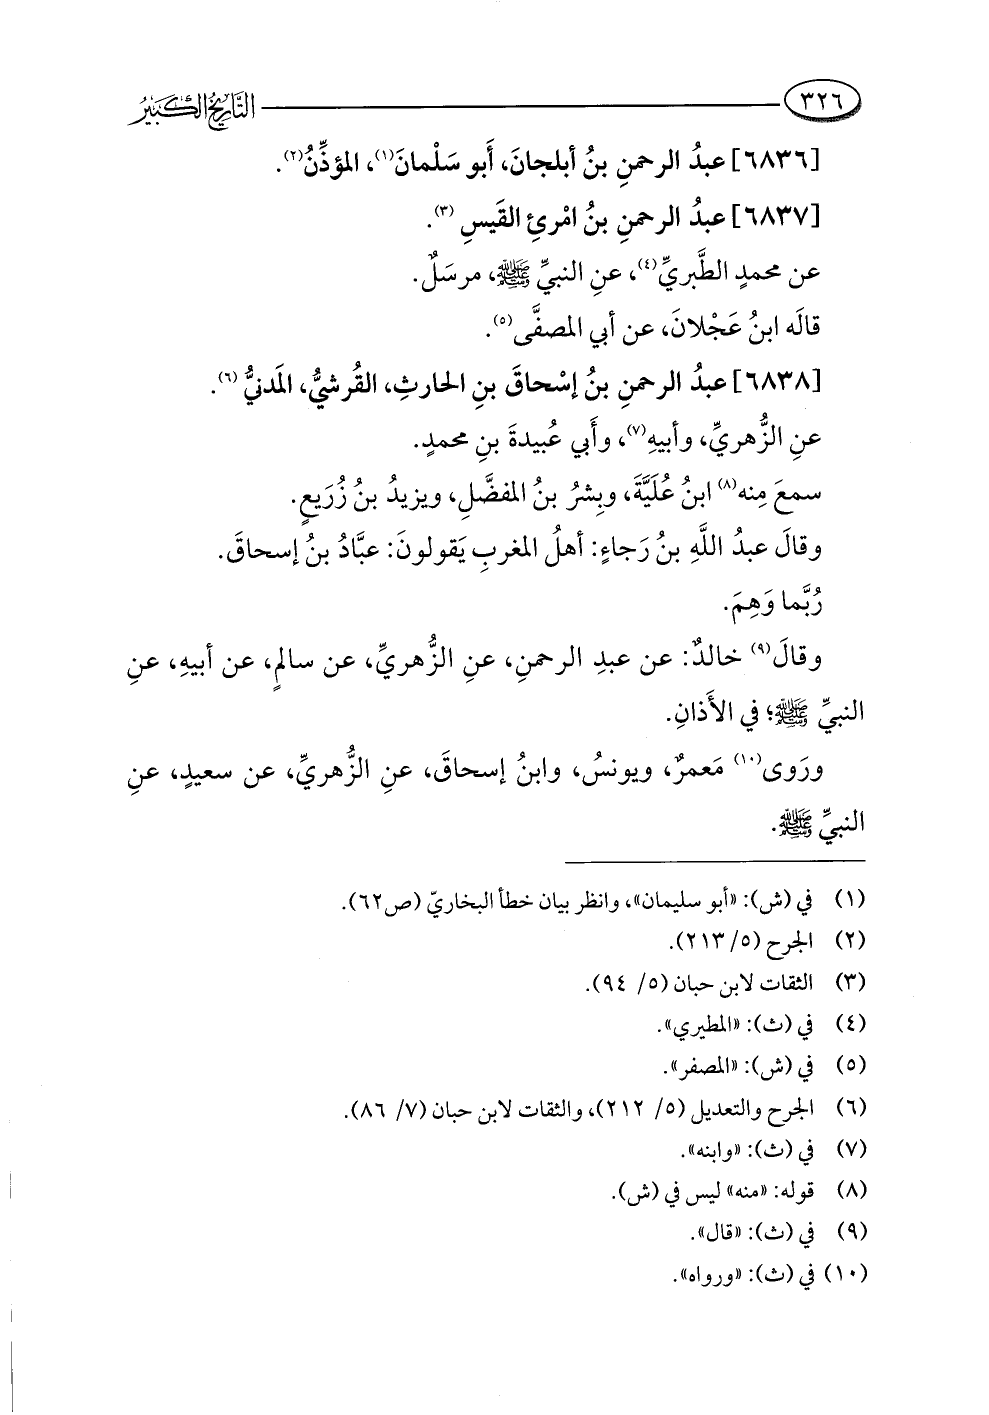 ٣٢٦ التاريخ الكبير
[٦٨٣٦] عبدُ الرحمنِ بنُ أبلجانَ، أَبو سَلْمانَ(١)، المؤذِّنُ(٢).
[٦٨٣٧] عبدُ الرحمنِ بنُ امْرئِ القَيسِ(٣).
عن محمدٍ الطَّبريِّ(٤)، عنِ النبيِّ ﷺ، مرسَلٌ.
قالَه ابنُ عَجْلانَ، عن أبي المصفَّى(٥).
[٦٨٣٨] عبدُ الرحمنِ بنُ إسْحاقَ بنِ الحارثِ، القُرشيُّ، المَدنيُّ(٦).
عنِ الزُّهريِّ، وأبيهِ(٧)، وأَبي عُبيدةَ بنِ محمدٍ.
سمعَ مِنه(٨) ابنُ عُلَيَّةَ، وبِشرُ بنُ المفضَّلِ، ويزيدُ بنُ زُرَيعٍ.
وقالَ عبدُ اللَّهِ بنُ رَجاءٍ: أهلُ المغربِ يَقولونَ: عبَّادُ بنُ إسحاقَ.
رُبَّما وَهِمَ.
وقالَ(٩) خالدٌ: عن عبدِ الرحمنِ، عنِ الزُّهريِّ، عن سالمٍ، عن أبيهِ، عنِ
النبيِّ ﷺ؛ في الأَذانِ.
ورَوى(١٠) مَعمرٌ، ويونسُ، وابنُ إسحاقَ، عنِ الزُّهريِّ، عن سعيدٍ، عنِ
النبيِّ ﷺ.
(١) في (ش): «أبو سليمان»، وانظر بيان خطأ البخاريّ (ص٦٢).
(٢) الجرح (٥/ ٢١٣).
(٣) الثقات لابن حبان (٥/ ٩٤).
(٤) في (ث): «المطيري».
(٥) في (ش): «المصفر».
(٦) الجرح والتعديل (٥/ ٢١٢)، والثقات لابن حبان (٧/ ٨٦).
(٧) في (ث): «وابنه».
(٨) قوله: «منه» ليس في (ش).
(٩) في (ث): «قال».
(١٠) في (ث): «ورواه».